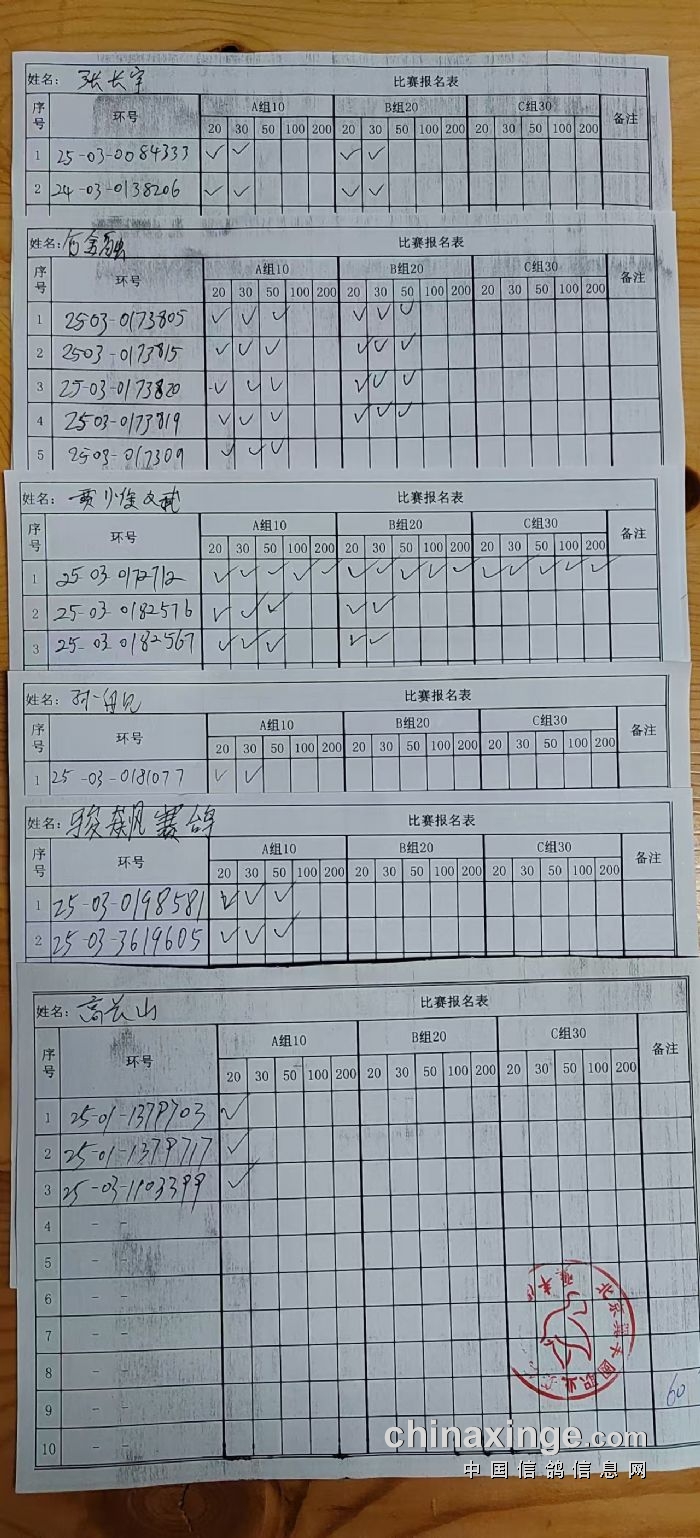 姓名: 张长宇 比赛报名表
序号 环号 A组10 B组20 C组30 备注
20 30 50 100 200 20 30 50 100 200 20 30 50 100 200
1 25-03-0084333 ✓ ✓ ✓ ✓
2 24-03-0138206 ✓ ✓ ✓ ✓
姓名: 比赛报名表
序号 环号 A组10 B组20 C组30 备注
20 30 50 100 200 20 30 50 100 200 20 30 50 100 200
1 2503-0173805 ✓ ✓ ✓ ✓ ✓ ✓
2 2503-0173815 ✓ ✓ ✓ ✓ ✓ ✓
3 25-03-0173820 ✓ ✓ ✓ ✓ ✓ ✓
4 2503-0173819 ✓ ✓ ✓ ✓ ✓ ✓
5 2503-017309 ✓ ✓ ✓
姓名: 贾小俊文武 比赛报名表
序号 环号 A组10 B组20 C组30 备注
20 30 50 100 200 20 30 50 100 200 20 30 50 100 200
1 25-03-0172712 ✓ ✓ ✓ ✓ ✓ ✓ ✓ ✓ ✓ ✓ ✓ ✓ ✓ ✓ ✓
2 25-03-0182576 ✓ ✓ ✓ ✓ ✓
3 25-03-0182567 ✓ ✓ ✓ ✓ ✓
姓名: 比赛报名表
序号 环号 A组10 B组20 C组30 备注
20 30 50 100 200 20 30 50 100 200 20 30 50 100 200
1 25-03-0181077 ✓ ✓
姓名: 骏飙赛鸽 比赛报名表
序号 环号 A组10 B组20 C组30 备注
20 30 50 100 200 20 30 50 100 200 20 30 50 100 200
1 25-03-0198581 ✓ ✓ ✓
2 25-03-3619605 ✓ ✓ ✓
姓名: 高长山 比赛报名表
序号 环号 A组10 B组20 C组30 备注
20 30 50 100 200 20 30 50 100 200 20 30 50 100 200
1 25-01-1379703 ✓
2 25-01-1379717 ✓
3 25-03-1103399 ✓
4 - -
5 - -
6 - -
7 - -
8 - -
9 - -
10 - -
北京 职业
60
chinaxinge.com
中国信鸽信息网